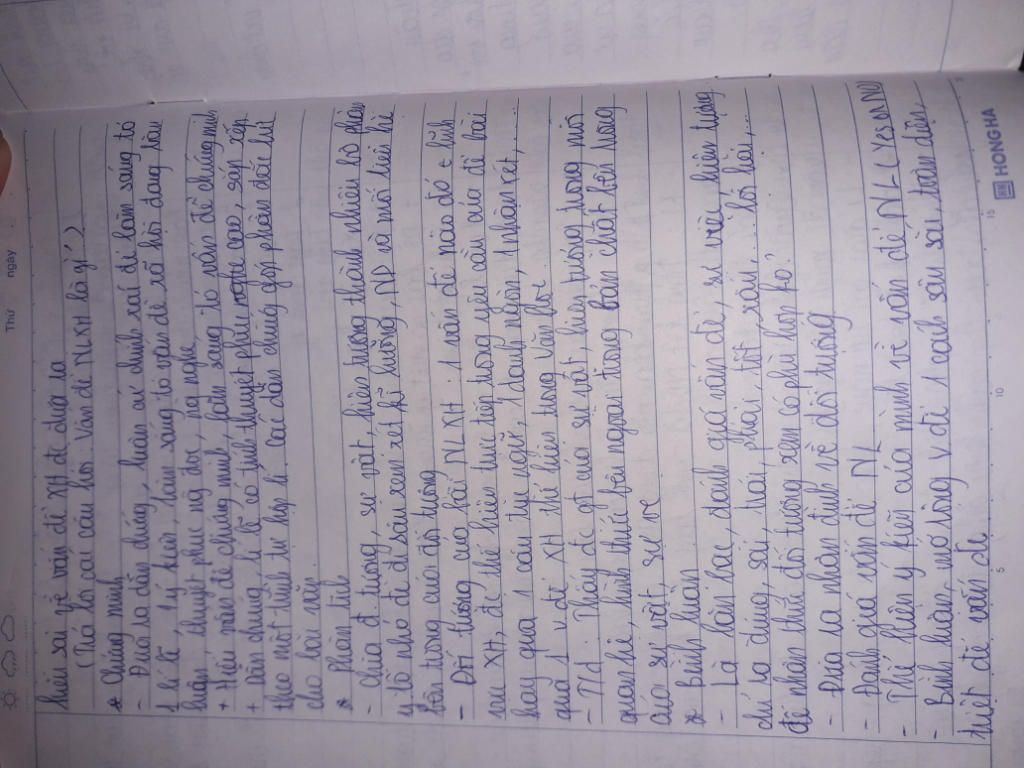 Thứ ngày
hiểu sai về vấn đề XH đc đưa ra
(Trả lời cái câu hỏi: Vấn đề NLXH là gì?)
* Chứng minh
- Đưa ra dẫn chứng, luận cứ chính xác để làm sáng tỏ
1 lí lẽ, 1 ý kiến, làm sáng tỏ vấn đề xã hội đang bàn
luận, thuyết phục ng đọc, ng nghe
+ Hiểu vấn đề chứng minh, làm sáng tỏ vấn đề chứng minh
+ Dẫn chứng, lí lẽ có tính thuyết phục cao, sắp xếp
theo một trình tự hợp lí. Các dẫn chứng góp phần đắc lực
cho bài văn.
* Phân tích
- Chia đ. tượng, sự vật, hiện tượng thành nhiều bộ phận
y tố nhỏ để đi sâu xem xét kĩ lưỡng, ND và mối liên hệ
bên trong của đối tượng
- Đối tượng của bài NLXH: 1 vấn đề nào đó ở lĩnh
vực XH, đc thể hiện trực tiếp trong yêu cầu của đề bài
hay qua 1 câu tục ngữ, 1 danh ngôn, 1 nhận xét,...
qua 1 v.đề XH thể hiện trong văn học
- Td: Thấy đc gt của sự vật, hiện tượng trong mối
quan hệ, hình thức bên ngoài trong bản chất bên trong
của sự vật, sự vc
* Bình luận
- Là bàn bạc, đánh giá vấn đề, sự việc, hiện tượng
chỉ ra đúng, sai, trái, phải, tốt, xấu,... lợi hại,...
để nhận thức đối tượng xem có phù hợp ko?
- Đưa ra nhận định về đối tượng
- Đánh giá vấn đề NL
- Thể hiện ý kiến của mình về vấn đề NL (Yes or No)
- Bình luận: mở rộng v.đề 1 cách sâu sắc, toàn diện,
triệt để vấn đề
HONG HA
5 10 15